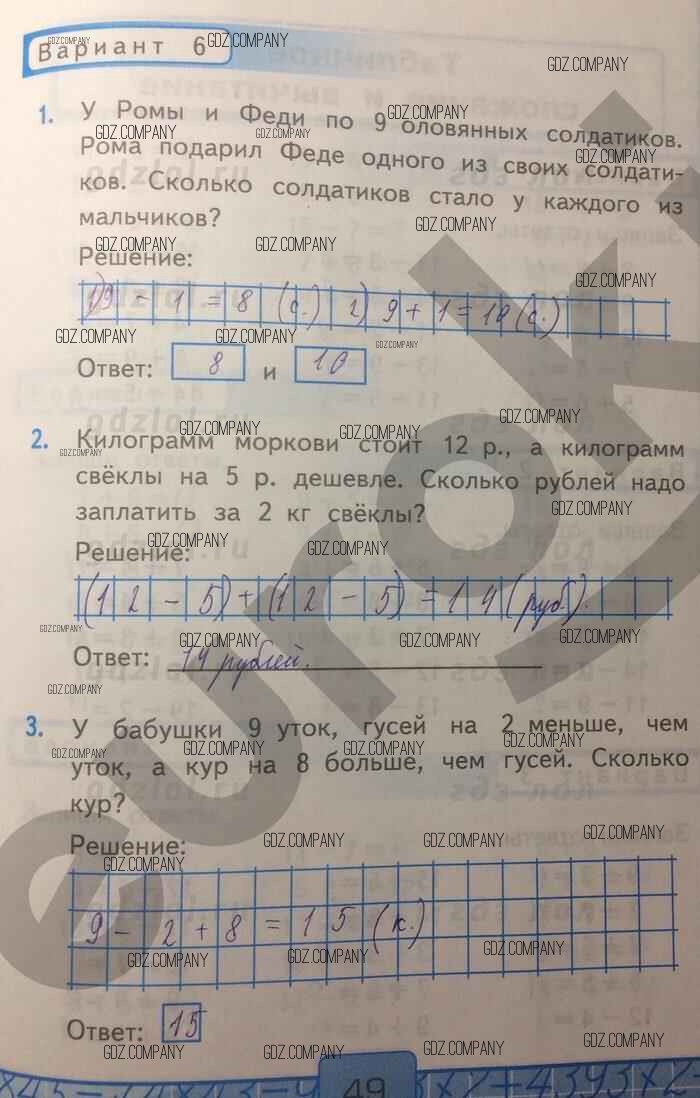 Вариант 6
1. У Ромы и Феди по 9 оловянных солдатиков.
Рома подарил Феде одного из своих солдати-
ков. Сколько солдатиков стало у каждого из
мальчиков?
Решение:
1) 9 - 1 = 8 (с.) 2) 9 + 1 = 10 (с.)
Ответ: 8 и 10
2. Килограмм моркови стоит 12 р., а килограмм
свёклы на 5 р. дешевле. Сколько рублей надо
заплатить за 2 кг свёклы?
Решение:
(12 - 5) + (12 - 5) = 14 (руб.).
Ответ: 14 рублей.
3. У бабушки 9 уток, гусей на 2 меньше, чем
уток, а кур на 8 больше, чем гусей. Сколько
кур?
Решение:
9 - 2 + 8 = 15 (к.)
Ответ: 15
49
GDZ.COMPANY
euroki